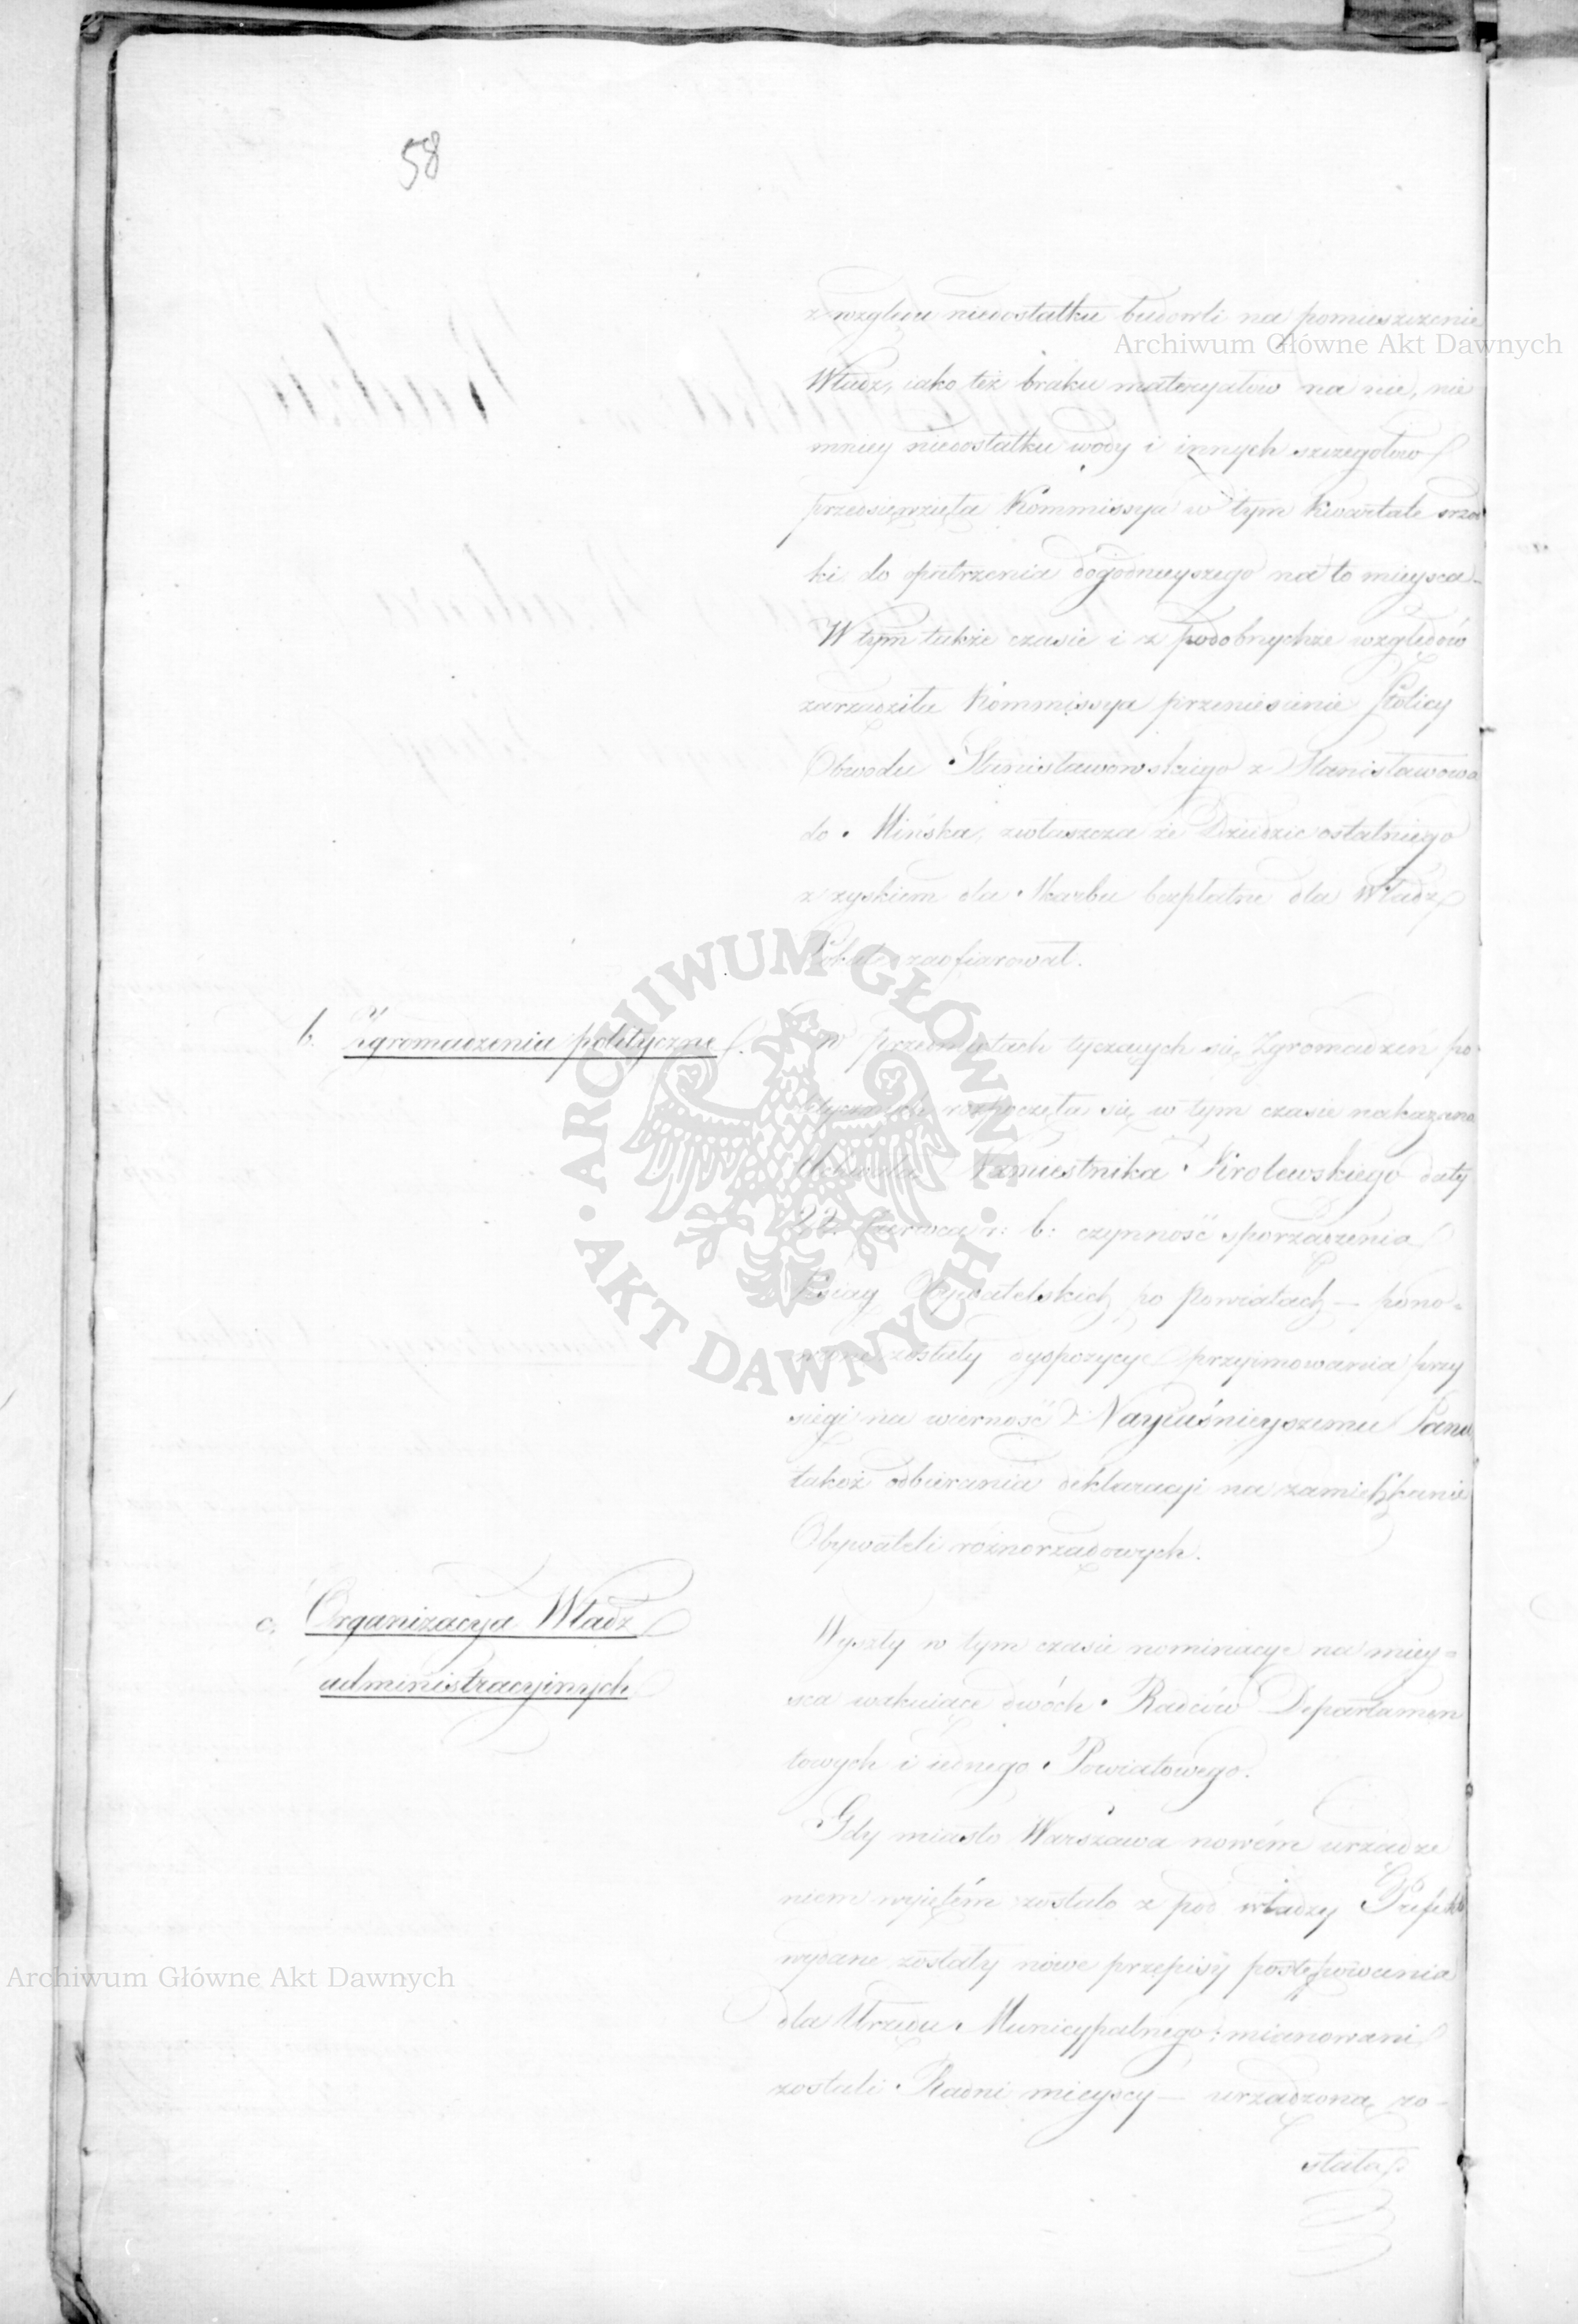 58
z względu niedostatku budowli na pomieszczenie
Władz, iako też braku materyałów na nie, nie
mniey niedostatku wody i innych szczegółów
przedsięwzięła Kommissya w tym kwartale śrzod
ki do opatrzenia dogodnieyszego na to mieysca.
W tym także czasie i z podobnychże względów
zarządziła Kommissya przeniesienie Stolicy
Obwodu Stanisławowskiego z Stanisławowa
do Mińska, zwłaszcza że Dziedzic ostatniego
z zyskiem dla Skarbu bezpłatne dla Władz
zaofiarował.
b. Zgromadzenia polityczne.
W przedmiotach tyczących się Zgromadzeń po-
litycznych rozpoczęta się w tym czasie nakazana
Namiestnika Królewskiego daty
22. Czerwca r: b: czynność sporządzenia
Xsiąg Obywatelskich po Powiatach — pono-
wione zostały dyspozycye przyimowania przy
sięgi na wierność Nayiaśnieyszemu Panu
takoż odbierania deklaracyi na zamieszkanie
Obywateli różnorządowych.
c. Organizacya Władz
administracyinych
Wyszły w tym czasie nominacye na miey-
sca wakuiące dwóch Radców Departamen
towych i iednego Powiatowego.
Gdy miasto Warszawa nowém urządze
niem wyiętém zostało z pod władzy Prefekta
wydane zostały nowe przepisy postępowania
dla Urzędu Municypalnego: mianowani
zostali Radni mieyscy — urządzona zo-
stała
Archiwum Główne Akt Dawnych
Archiwum Główne Akt Dawnych
ARCHIWUM GŁÓWNE
AKT DAWNYCH